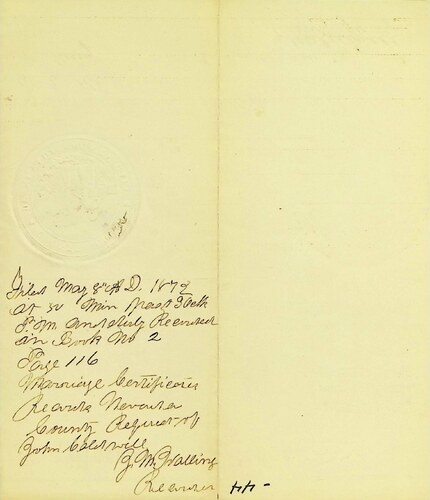 Filed May 8th A.D. 1872
at 30 Min past 3 Oclk
P.M. and duly Recorded
in Book No 2
Page 116
Marriage Certificates
Records Nevada
County Request of
John Caldwell
Recorder